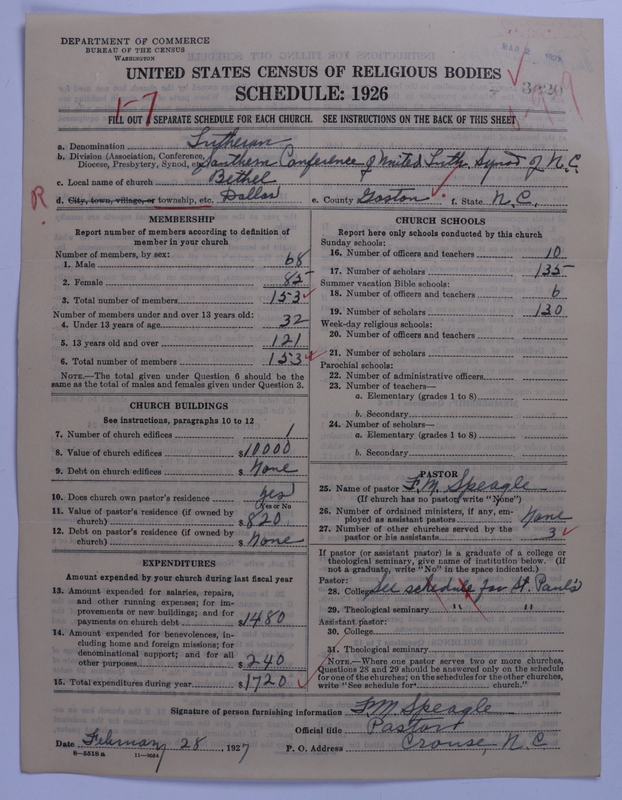 DEPARTMENT OF COMMERCE
BUREAU OF THE CENSUS
WASHINGTON
MAR 2 1927
UNITED STATES CENSUS OF RELIGIOUS BODIES
SCHEDULE: 1926
FILL OUT A SEPARATE SCHEDULE FOR EACH CHURCH. SEE INSTRUCTIONS ON THE BACK OF THIS SHEET
a. Denomination Lutheran
b. Division (Association, Conference, Diocese, Presbytery, Synod, etc.) Southern Conference of United Luth. Synod of N.C.
c. Local name of church Bethel
R.
d. City, town, village, or township, etc. Dallas e. County Gaston f. State N.C.
MEMBERSHIP
Report number of members according to definition of
member in your church
Number of members, by sex:
1. Male 68
2. Female 85
3. Total number of members 153
Number of members under and over 13 years old:
4. Under 13 years of age 32
5. 13 years old and over 121
6. Total number of members 153
NOTE.—The total given under Question 6 should be
same as the total of males and females given under Question 3.
CHURCH BUILDINGS
See instructions, paragraphs 10 to 12
7. Number of church edifices 1
8. Value of church edifices $10000
9. Debt on church edifices $ None
10. Does church own pastor's residence yes
Yes or No
11. Value of pastor's residence (if owned by
church) $820
12. Debt on pastor's residence (if owned by
church) $ None
EXPENDITURES
Amount expended by your church during last fiscal year
13. Amount expended for salaries, repairs,
and other running expenses; for im-
provements or new buildings; and for
payments on church debt $1480
14. Amount expended for benevolences, in-
cluding home and foreign missions; for
denominational support; and for all
other purposes $240
15. Total expenditures during year $1720
CHURCH SCHOOLS
Report here only schools conducted by this church
Sunday schools:
16. Number of officers and teachers 10
17. Number of scholars 135
Summer vacation Bible schools:
18. Number of officers and teachers 6
19. Number of scholars 130
Week-day religious schools:
20. Number of officers and teachers
21. Number of scholars
Parochial schools:
22. Number of administrative officers
23. Number of teachers—
a. Elementary (grades 1 to 8)
b. Secondary
24. Number of scholars—
a. Elementary (grades 1 to 8)
b. Secondary
PASTOR
25. Name of pastor F.M. Speagle
(If church has no pastor, write "None")
26. Number of ordained ministers, if any, em-
ployed as assistant pastors None
27. Number of other churches served by the
pastor or his assistants 3
If pastor (or assistant pastor) is a graduate of a college or
theological seminary, give name of institution below. (If
not a graduate, write "No" in the space indicated.)
Pastor:
28. College See schedule for St. Paul's
29. Theological seminary " "
Assistant pastor:
30. College
31. Theological seminary
NOTE.—Where one pastor serves two or more churches,
Questions 28 and 29 should be answered only on the schedule
for one of the churches; on the schedules for the other churches,
write "See schedule for church."
Signature of person furnishing information F.M. Speagle
Official title Pastor
Date February 28 1927 P. O. Address Crouse, N.C.
8—5518 a 11—9054